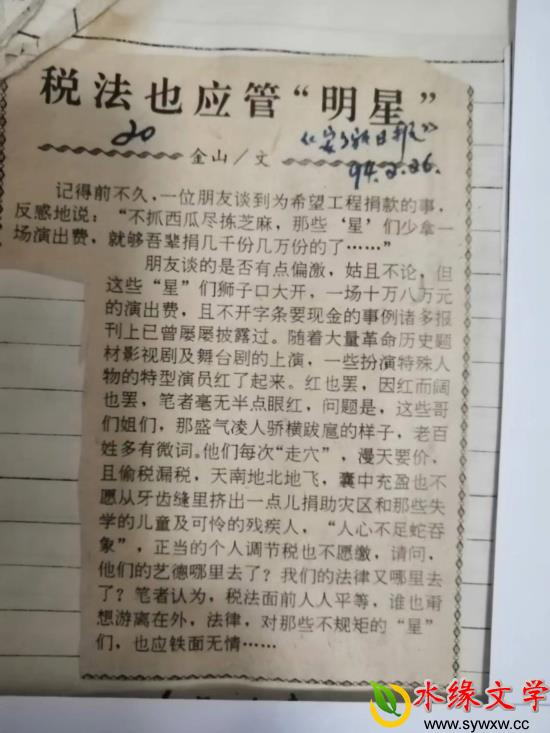 税法也应管“明星”
20
金山／文
日报》
94.2.26.
记得前不久，一位朋友谈到为希望工程捐款的事，
反感地说：“不抓西瓜尽拣芝麻，那些‘星’们少拿一
场演出费，就够吾辈捐几千份几万份的了……”
朋友谈的是否有点偏激，姑且不论，但
这些“星”们狮子口大开，一场十万八万元
的演出费，且不开字条要现金的事例诸多报
刊上已曾屡屡披露过。随着大量革命历史题
材影视剧及舞台剧的上演，一些扮演特殊人
物的特型演员红了起来。红也罢，因红而阔
也罢，笔者毫无半点眼红，问题是，这些哥
们姐们，那盛气凌人骄横跋扈的样子，老百
姓多有微词。他们每次“走穴”，漫天要价，
且偷税漏税，天南地北地飞，囊中充盈也不
愿从牙齿缝里挤出一点儿捐助灾区和那些失
学的儿童及可怜的残疾人，“人心不足蛇吞
象”，正当的个人调节税也不愿缴，请问，
他们的艺德哪里去了？我们的法律又哪里去
了？笔者认为，税法面前人人平等，谁也甭
想游离在外，法律，对那些不规矩的“星”
们，也应铁面无情……
水缘文学
www.sywxw.cc